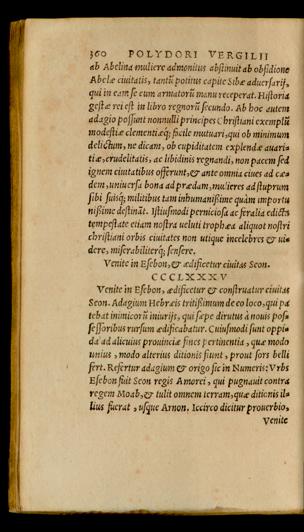 360 POLYDORI VERGILII
ab Abelina muliere admonitus abstinuit ab obsidione
Abelæ ciuitatis, tantũ potitus capite Sibæ aduersarij,
qui in eam se cum armatorũ manu receperat. Historia
gestæ rei est in libro regnorũ secundo. Ab hoc autem
adagio possunt nonnulli principes Christiani exemplũ
modestiæ clementiæq́; facile mutuari, qui ob minimum
delictum, ne dicam, ob cupiditatem explendæ auari
tiæ, crudelitatis, ac libidinis regnandi, non pacem sed
ignem ciuitatibus offerunt, & ante omnia ciues ad cæ
dem, uniuersa bona ad prædam, mulieres ad stuprum
sibi suisq́; militibus tam inhumanißime quàm importu
nißime destinãt. Istiusmodi perniciosa ac feralia edicta
tempestate etiam nostra ueluti trophæa aliquot nostri
christiani orbis ciuitates non utique incelebres & ui-
dere, miserabiliterq́; sensere.
Venite in Esebon, & ædificetur ciuitas Seon.
CCCLXXXV
Venite in Esebon, ædificetur & construatur ciuitas
Seon. Adagium Hebræis tritißimum de eo loco, qui pa
tebat inimicorũ iniurijs, qui sæpe dirutus à nouis pos-
sessoribus rursum ædificabatur. Cuiusmodi sunt oppi-
da ad alicuius prouinciæ fines pertinentia, quæ modo
unius, modo alterius ditionis fiunt, prout sors belli
fert. Refertur adagium & origo sic in Numeris: Vrbs
Esebon fuit Seon regis Amorei, qui pugnauit contra
regem Moab, & tulit omnem terram, quæ ditionis il-
lius fuerat, usque Arnon. Iccirco dicitur prouerbio,
Venite